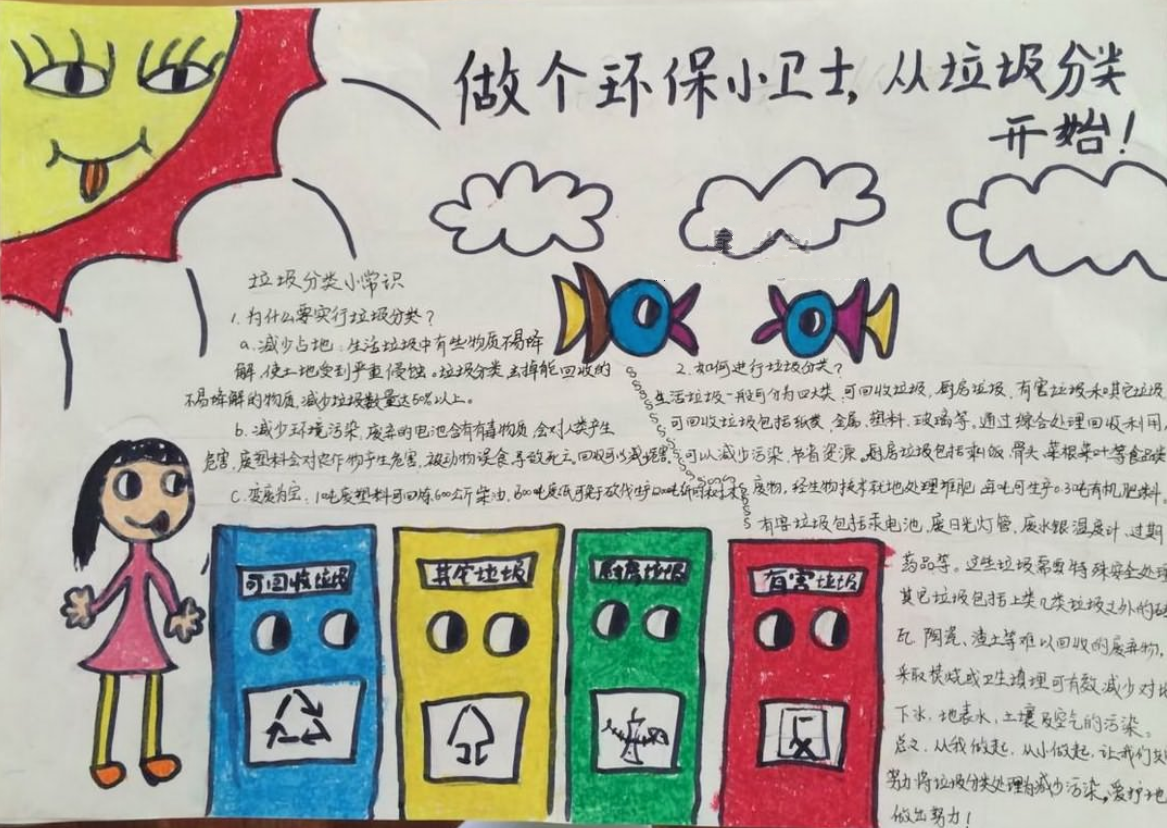 做个环保小卫士,从垃圾分类
开始!
垃圾分类小常识
1.为什么要实行垃圾分类?
a.减少占地:生活垃圾中有些物质不易降
解,使土地受到严重侵蚀。垃圾分类去掉能回收的
不易降解的物质,减少垃圾数量达50%以上。
b.减少环境污染,废弃的电池含有有毒物质,会对人类产生
危害,废塑料会对农作物产生危害,被动物误食,导致死亡。回收可以减少危害。
C.变废为宝:1吨废塑料可回炼600公斤柴油,
2.如何进行垃圾分类?
生活垃圾一般可分为四大类:可回收垃圾,厨房垃圾,有害垃圾和其它垃圾
可回收垃圾包括纸类,金属,塑料,玻璃等。通过综合处理回收利用,
可以减少污染,节省资源。厨房垃圾包括剩饭,骨头,菜根菜叶等食品类
废物,经生物技术就地处理堆肥,每吨可生产0.3吨有机肥料。
有害垃圾包括汞电池,废日光灯管,废水银温度计,过期
药品等。这些垃圾需要特殊安全处理
其它垃圾包括上类几类垃圾之外的砖
瓦,陶瓷,渣土等难以回收的废弃物,
采取焚烧或卫生填埋可有效减少对地
下水,地表水,土壤及空气的污染。
总之,从我做起,从小做起,让我们
努力将垃圾分类处理为减少污染,爱护地
做出努力!
可回收垃圾
其它垃圾
厨房垃圾
有害垃圾